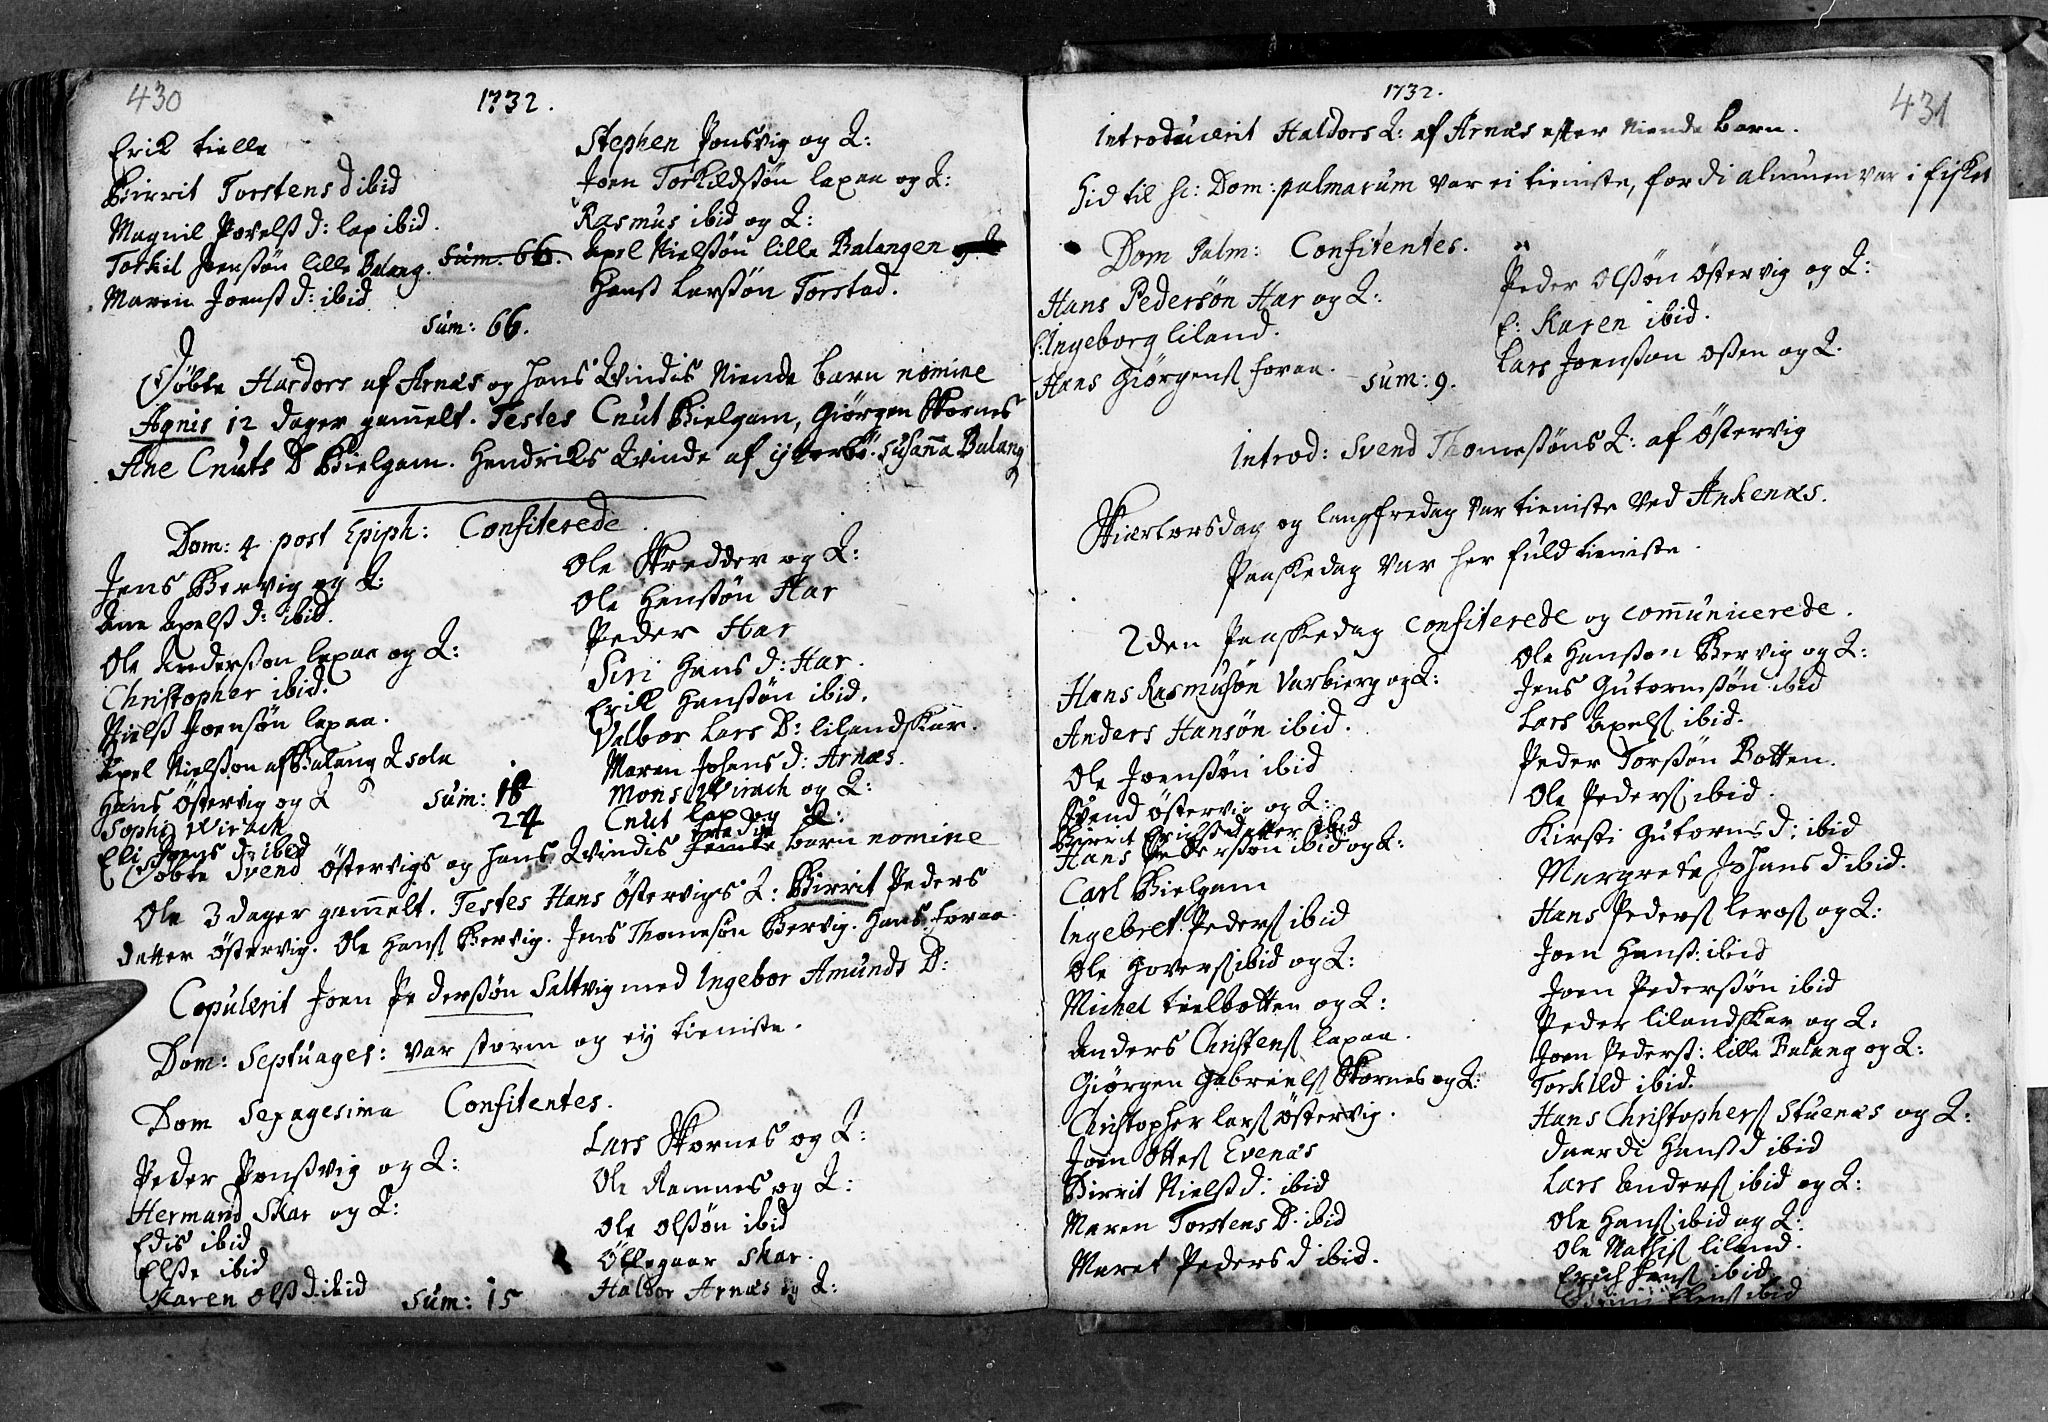 430
1732.
Erik tielle
Birrit Torstens d ibid
Magnil Povelss d: lax ibid.
Torkil Joenssön lille Balang.
Maren Joenss d: ibid
Stephen Ponsvig og Q:
Joen Torkildssön laxaa og Q:
Rasmus ibid og Q:
sum: 66.
Axel Nielssön lille Balangen
Hans Larssön Torstad.
sum: 66.
Döbte Hardors af Arnæs og hans Qvindis Niende barn nomine
Agnis 12 dager gam̄elt. Testes Cnut Bielgam, Giörgen Skornes
Ane Cnuts D Bielgam. Hendriks Qvinde af ytterbö. Susan̄a Balang
Dom: 4 post Epiph: Confiterede.
Jens Bervig og Q:
Ane Axelss d: ibid.
Ole Anderssøn laxaa og Q:
Christopher ibid.
Nielss Joensön laxaa.
Axel Nielsson af Balang Q sola
Hans Östervig og Q
Sophi Wirach
Eli Joens d: ibid
sum: 18
24
Ole Skredder og Q:
Ole Hanssön Har
Peder Har
Siri Hans d: Har.
Erik Hanssön ibid.
Valbor Lars D: lilandskar.
Maren Johans d: Arnæs.
Mons Wirach og Q:
Cnut lax og Q:
Döbte Svend Östervigs og hans Qvindis femte tredie barn nomine
Ole 3 dager gam̄elt. Testes Hans Östervigs Q: Birrit Peders
detter Östervig. Ole Hanss Bervig. Jens Thomesön Bervig. Hans foraa.
Copulerit Joen Pederssön Saltvig med Ingebor Amunds D:
Dom: Septuages: var storm og ey tieniste.
Dom Sexagesima Confitentes.
Peder Ponssvig og Q:
Hermand Skar og Q:
Edis ibid
Elsse ibid
Karen Olss d: ibid
sum: 15
Lars Skornes og Q:
Ole Ramnes og Q:
Ole Olssön ibid
Öllegaar Skar.
Haldor Arnæs og Q:
431
1732.
Introducerit Haldors Q: af Arnæs efter Niende barn.
Hid til sc: Dom: palmarum var ei tieniste, fordi almuen var i fisket
Dom Palm: Confitentes.
Hans Pedersön Har og Q:
E: Ingeborg liland.
Hans Giörgenss foraa.
sum: 9.
Peder Olssön Östervig og Q:
E: Karen ibid.
Lars Joensson Osen og Q.
Introd: Svend Thomessöns Q: af Östervig
Skiertorsdag og langfredag var tieniste ved Ankenæs.
Paaskedag var her fuld tieniste.
2den Paaskedag confiterede og com̄unicerede.
Hans Rasmusön Varbierg og Q:
Anders Hansön ibid.
Ole Joenssön ibid
Svend Östervig og Q:
Birrit Erichss detter ibid
Hans Pederssön ibid og Q:
Carl Bielgam
Ingebret Pederss ibid
Ole Goverss ibid og Q:
Michel tielbotten og Q:
Anders Christenss laxaa.
Giörgen Gabrielss Skornes og Q:
Christopher Larss Östervig.
Joen Ottess Evenæs
Birrit Nielss d: ibid
Maren Torstens D: ibid
Maret Peders d ibid.
Ole Hanssøn Bervig og Q:
Jens Gutormssön ibid
Lars Axelss ibid.
Peder Torssön Botten.
Ole Pederss ibid.
Kirsti Gutorms d: ibid
Margrete Johans d: ibid.
Hans Pederss leross og Q:
Joen Hanss: ibid
Joen Pederssön ibid
Peder lilandskar og Q:
Joen Pederss: lille Balang og Q:
Torkild ibid.
Hans Christopherss Stuenæs og Q:
Daardi Hanss d ibid
Lars Anderss ibid og Q:
Ole Hanss ibid og Q:
Ole Mathiss liland.
Erich Hanss ibid